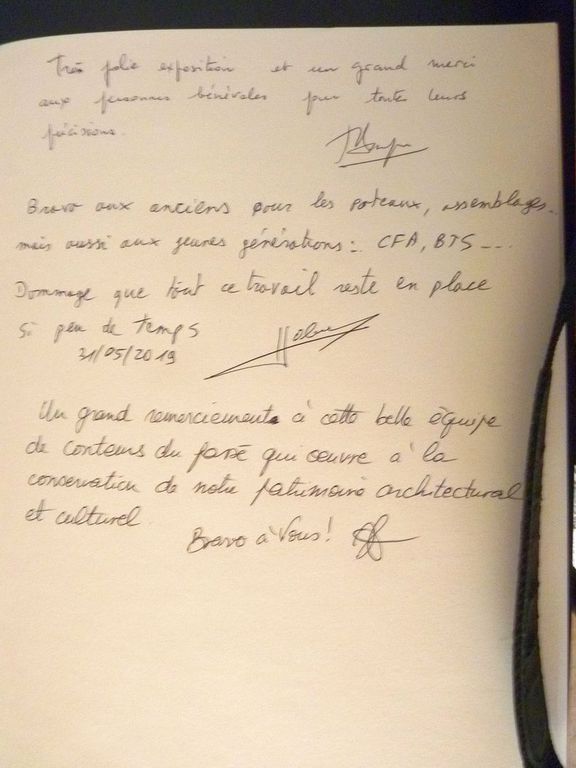 Très jolie exposition et un grand merci
aux personnes bénévoles pour toutes leurs
précisions.
Bravo aux anciens pour les poteaux, assemblages..
mais aussi aux jeunes générations : CFA, BTS ....
Dommage que tout ce travail reste en place
si peu de temps
31/05/2019
Un grand remerciement à cette belle équipe
de conteurs du passé qui œuvre à la
conservation de notre patrimoine architectural
et culturel.
Bravo à Vous !